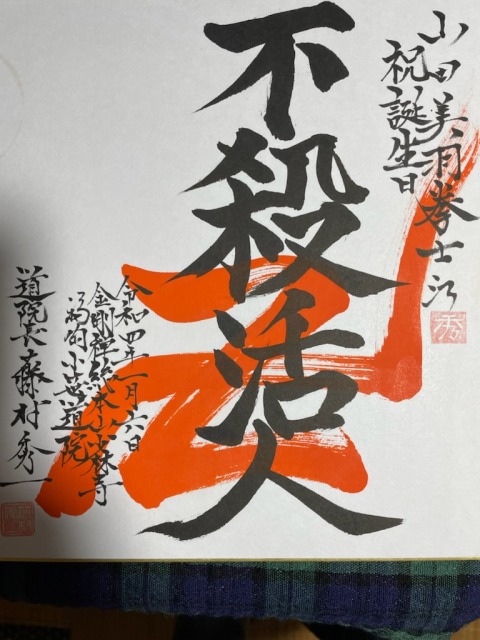 小田美羽拳士江
祝誕生日
秀
不殺活人
令和四年一月六日
金剛禅総本山少林寺
道院
道院長 藤村秀一